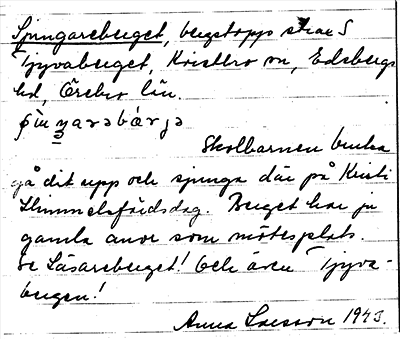 Sjungareberget, bergstopp strax S
Tjyvaberget, Kristbro on, Edsbergs
hd, Örebro län.
Skolbarnen bruka
gå dit upp och sjunga där på Kristi
Himmelsfärdsdag. Berget har ju
gamla anor som mötesplats.
se Läsareberget! Och även Tjyva-
bergen!
Anna Larsson 1943.